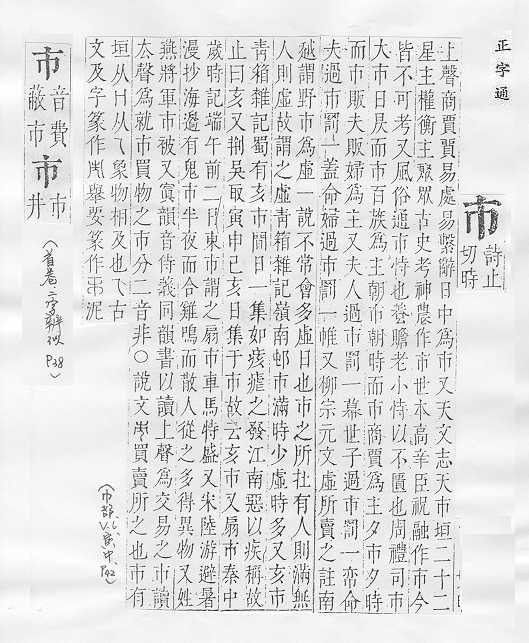 正字通
市 詩止切時
上聲商賈貿易處易繫辭日中爲市又天文志天市垣二十二
星主權衡主聚眾古史考神農作市世本高辛臣祝融作市今
皆不可考又風俗通市恃也養贍老小恃以不匱也周禮司市
大市日昃而市百族爲主朝市朝時而市商賈爲主夕市夕時
而市販夫販婦爲主又夫人過市罰一幕世子過市罰一帟命
夫過市罰一蓋命婦過市罰一帷又柳宗元文虛所賣之註南
越謂野市爲虛一說不常會多虛日也市之所在有人則滿無
人則虛故謂之虛靑箱雜記嶺南邨市滿時少虛時多又亥市
靑箱雜記蜀有亥市間日一集如痎瘧之發江南惡以疾稱故
止曰亥又捌吳取寅申巳亥日集于市故云亥市又扇市秦中
歲時記端午前二日東市謂之扇市車馬特盛又宋陸游避暑
漫抄海邊有鬼市半夜而合雞鳴而散人從之多得異物又姓
燕將軍市被又寘韻音侍義同韻書以讀上聲爲交易之市讀
去聲爲就市買物之市分二音非○說文買賣所之也市有
垣从冂从乁象物相及也乁古
文及字篆作舉要篆作泥
(巾部 P42)
市 音費 蔽市
市 市井
(首卷 字辨似 P.38)